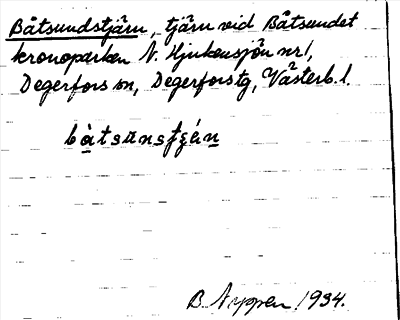 Båtsundstjärn, tjärn vid Båtsundet
kronoparken N. Hjukensjön nr 1,
Degerfors sn, Degerfors tg, Västerb. l.
bàtsunsfʒán
B. Arppen 1934.